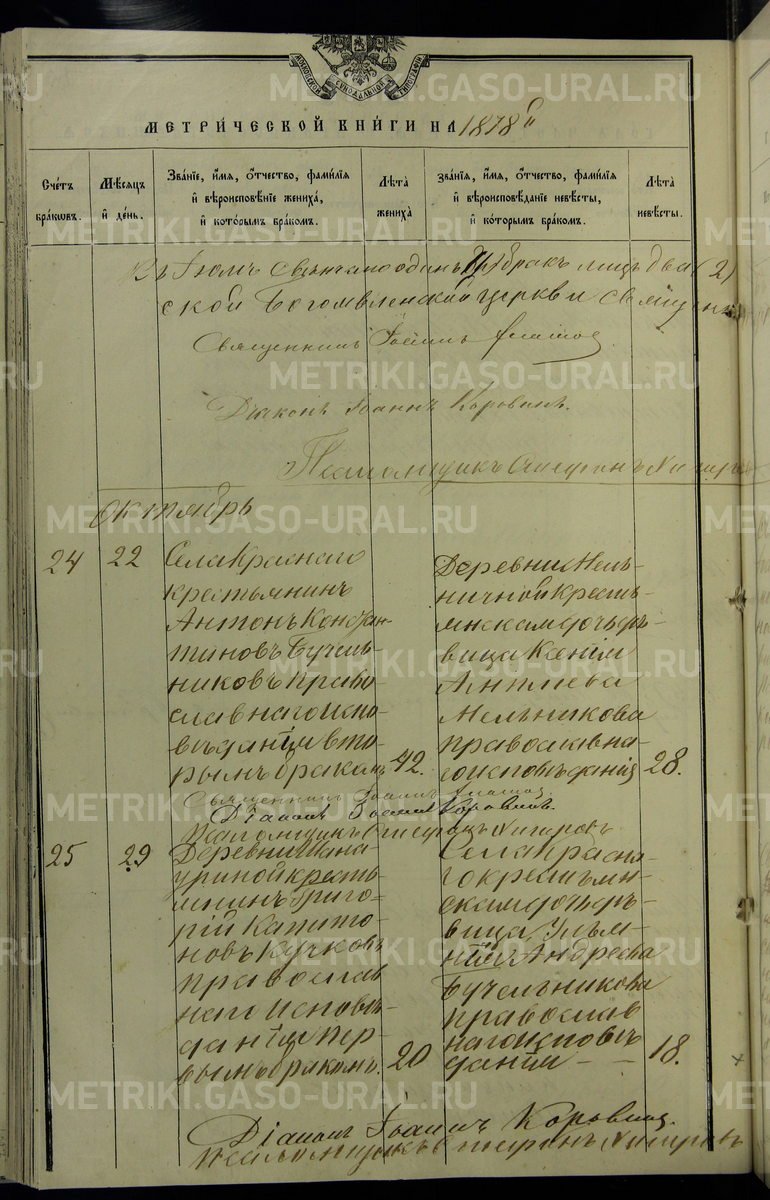 МЕТРИЧЕСКОЙ КНИГИ НА 1878 г
Счетъ браковъ.
Мѣсяцъ и день.
Званіе, имя, отчество, фамилія и вѣроисповѣніе жениха, и которымъ бракомъ.
Лѣта жениха
званія, имя, отчество, фамилія и вѣроисповѣданіе невѣсты, и которымъ бракомъ.
Лѣта невѣсты.
Въ Іюлѣ свѣнчано одинъ (1) бракъ лицъ два (2)
ской Богоявленской церкви священ
Священникъ Іоаннъ
Діаконъ Іоаннъ Коровинъ.
Псаломщикъ Стефанъ
Октябрь
24
22
Села Краснаго
крестьянинъ
Антонъ Констан-
тиновъ Бучель-
никовъ право-
славнаго испо-
вѣданія вто-
рымъ бракомъ
42.
Деревни Мель-
ничной кресть-
янская дочь дѣ-
вица Ксенія
Мельникова
православна-
го исповѣданія
28.
Священникъ Іоаннъ
Діаконъ Іоаннъ Коровинъ.
Псаломщикъ Стефанъ
25
29
Деревни
кресть-
янинъ Григо-
рій Капито-
новъ Кучковъ
православ
наго исповѣ-
данія пер-
вымъ бракомъ.
20
Села Красна-
го крестьян-
ская дочь дѣ-
вица Улья-
нія Андреева
Бучельникова
православ
наго исповѣ
данія - -
18.
Діаконъ Іоаннъ Коровинъ.
Псаломщикъ Стефанъ
METRIKI.GASO-URAL.RU